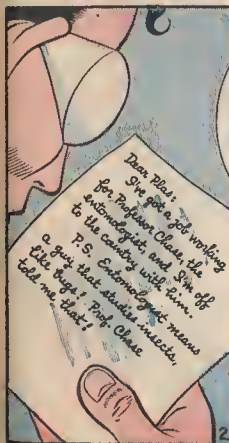 Dear Plas:
I've got a job working
for Professor Chase, the
entomologist, and I'm off
to the country with him.
P.S. Entomologist means
a guy that studies insects,
like bugs! Prof. Chase
told me that!
2